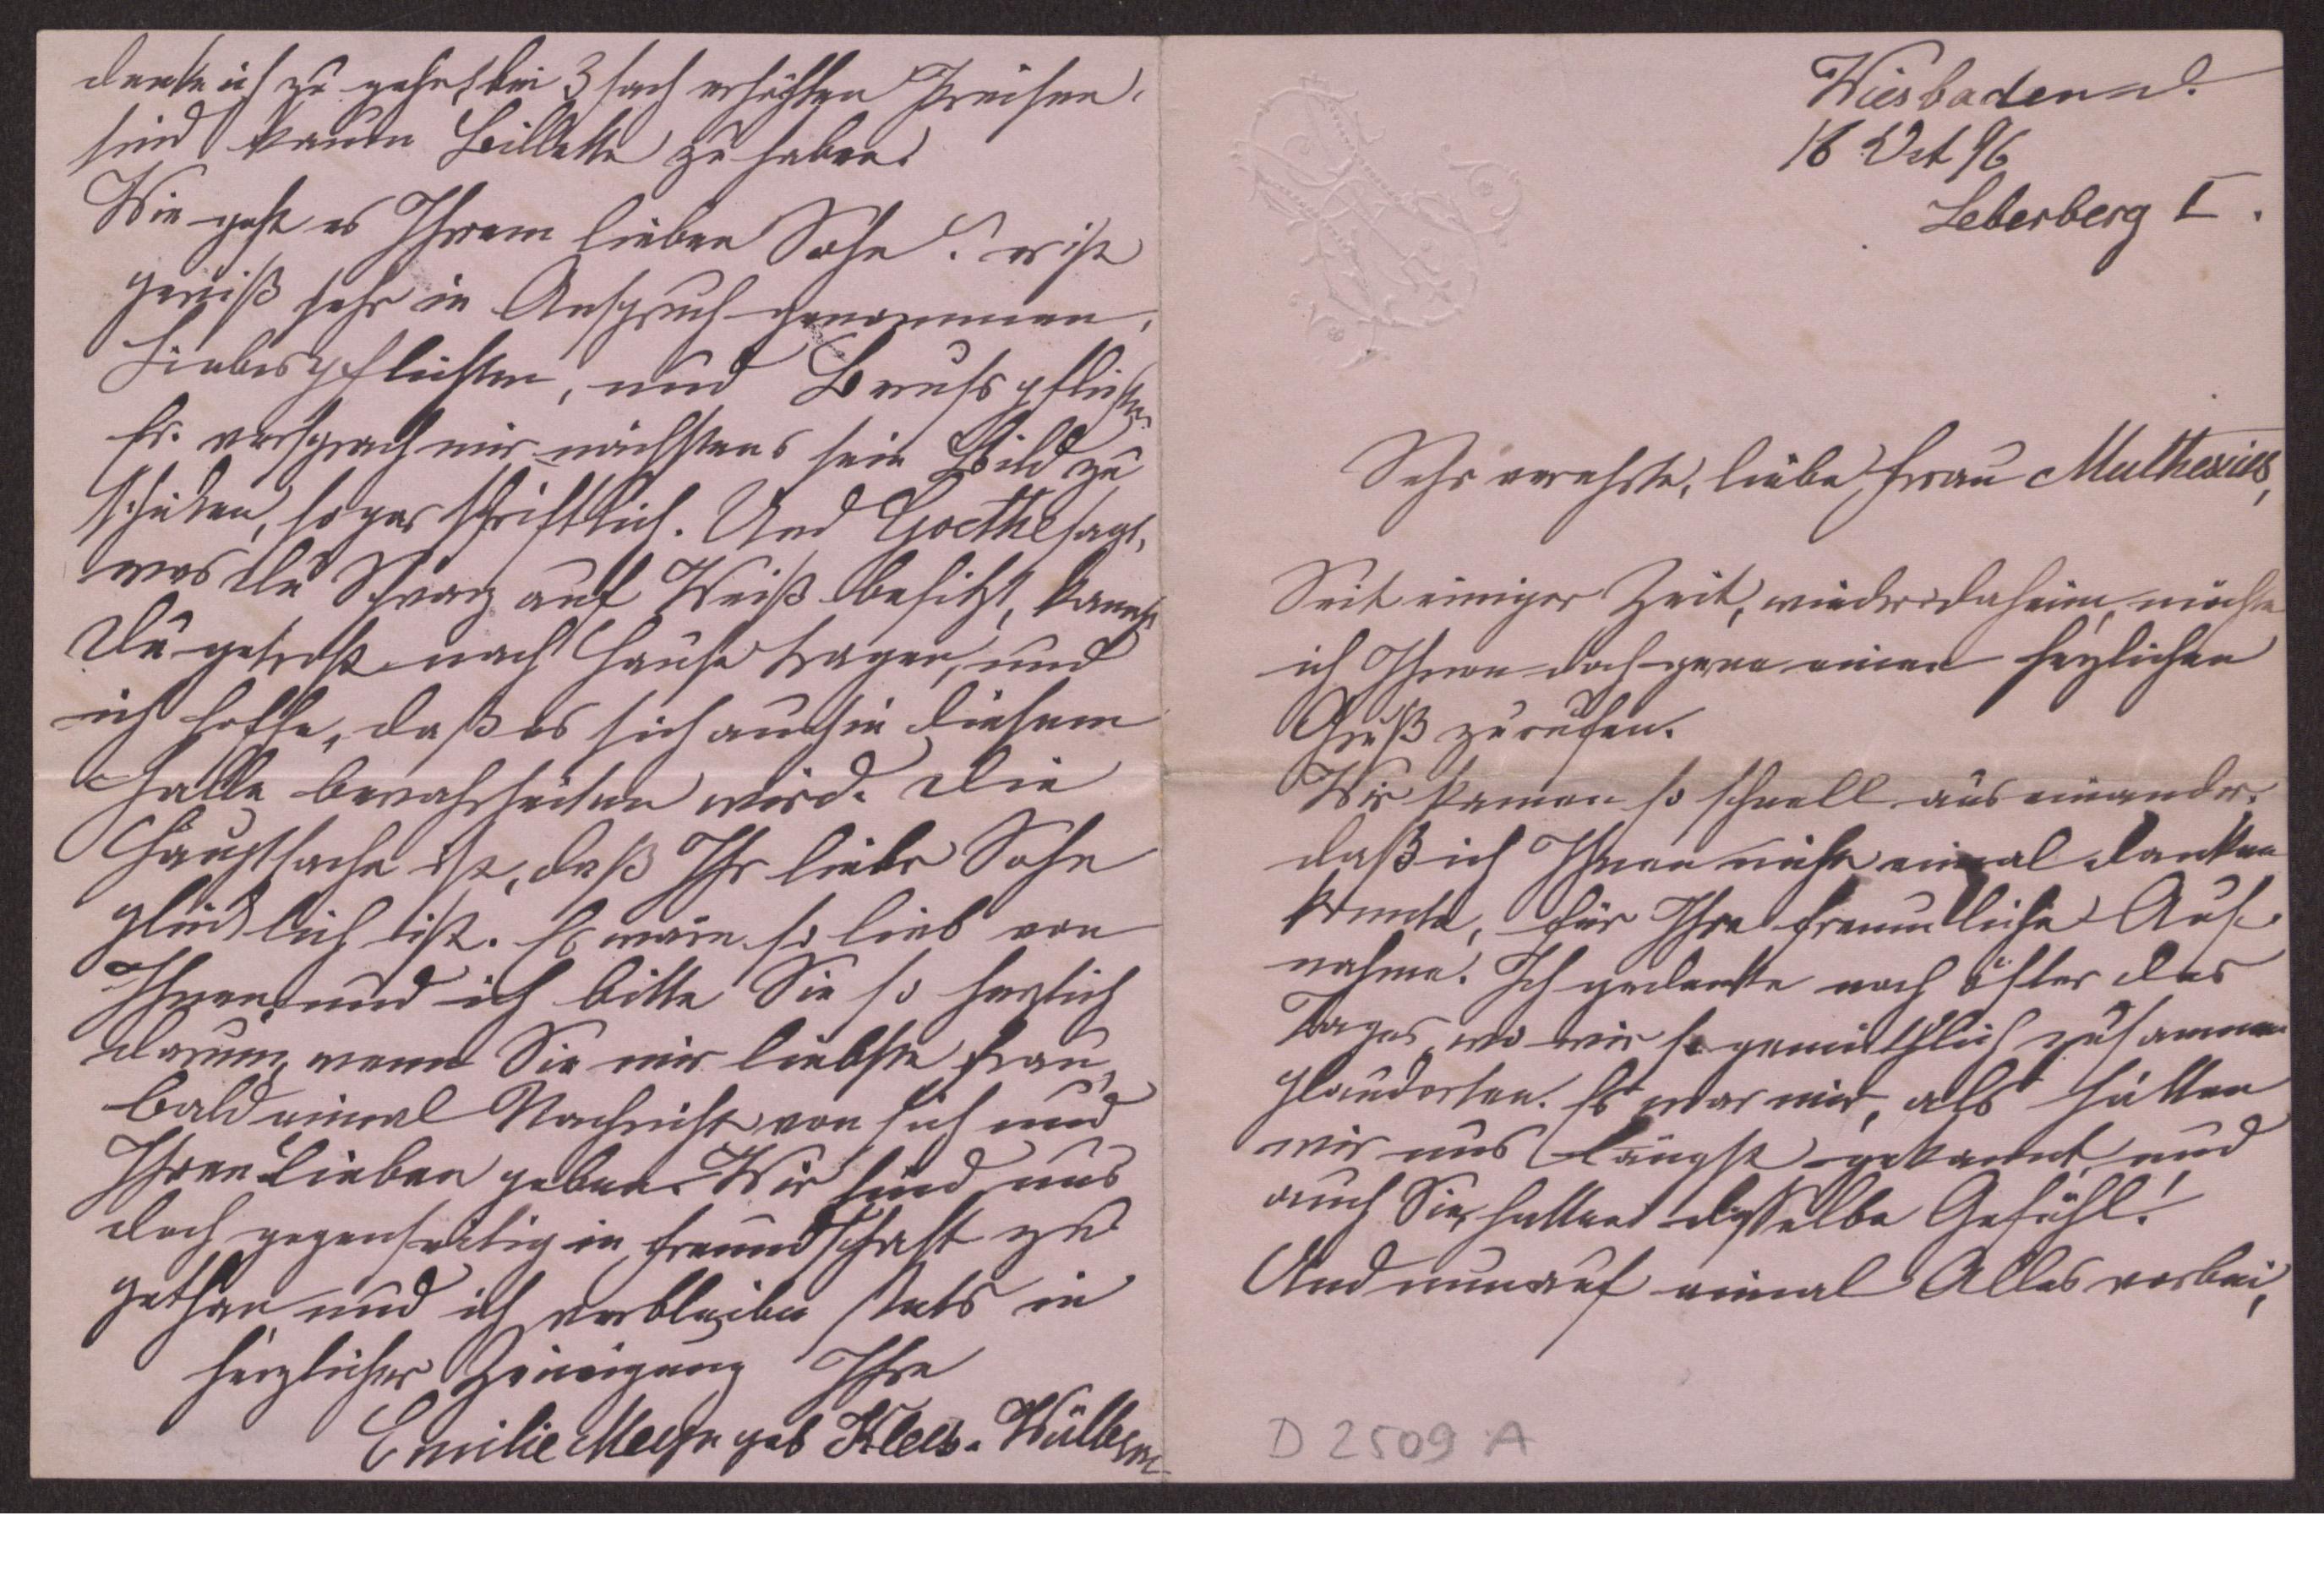 Wiesbaden d.
16 Oct 96
Leberberg I.
Sehr verehrte, liebe Frau Muthesius,
Seit einiger Zeit, wieder daheim, möchte
ich Ihnen doch gern einen herzlichen
Gruß zurufen.
Wir kamen so schnell auseinander,
daß ich Ihnen nicht einmal danken
konnte, für Ihre freundliche Auf-
nahme. Ich gedenke noch öfter des
Tages, wo wir so gemüthlich zusammen
plauderten. Es war mir, als hätten
wir uns längst gekannt, und
auch Sie hatten dasselbe Gefühl!
Und nun auf einmal Alles vorbei,
D 2509 A
denke ich zu gehen, bei 3fach erhöhten Preisen,
sind kaum Billette zu haben.
Wie geht es Ihrem lieben Sohn? er ist
gewiß sehr in Anspruch genommen,
Liebespflichten, und Berufspflichten.
Er versprach mir nächstens sein Bild zu
schicken, sogar schriftlich. Und Goethe sagt,
was Du Schwarz auf Weiß besitzt, kannst
Du getrost nach Hause tragen, und
ich hoffe, daß es sich auch in diesem
Falle bewahrheiten wird. Die
Hauptsache ist, daß Ihr lieber Sohn
glücklich ist. Es wäre so lieb von
Ihnen, und ich bitte Sie so herzlich
darum, wenn Sie mir liebste Frau,
bald einmal Nachricht von sich und
Ihren Lieben geben. Wir sind uns
doch gegenseitig in Freundschaft zu
gethan, und ich verbleibe stets in
herzlicher Zuneigung Ihre
Emilie Meyn geb Klees-Wülbern